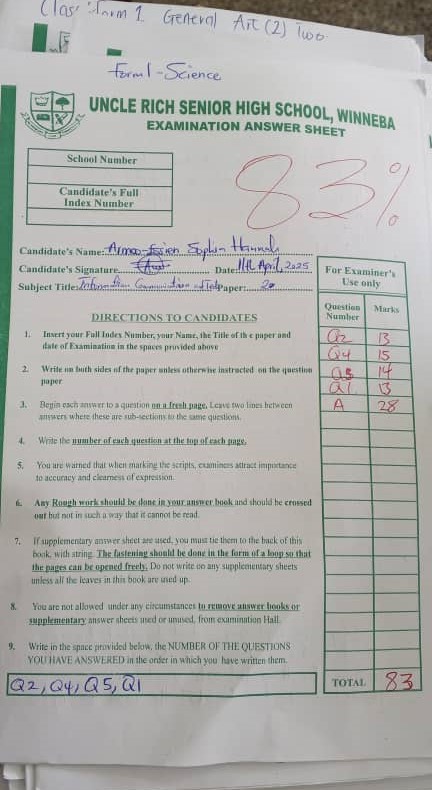 Class Form 1 General Art (2) Two
Form 1 - Science
UNCLE RICH SENIOR HIGH SCHOOL, WINNEBA
EXAMINATION ANSWER SHEET
83%
School Number
Candidate's Full
Index Number
Candidate's Name: Sophia Hannah
Candidate's Signature Date: 11th April, 2025
Subject Title: Information Communication Paper: 2
For Examiner's
Use only
Question Number Marks
Q2 13
Q4 15
Q5 14
Q1 13
A 28
DIRECTIONS TO CANDIDATES
1. Insert your Full Index Number, your Name, the Title of the paper and
date of Examination in the spaces provided above
2. Write on both sides of the paper unless otherwise instructed on the question
paper
3. Begin each answer to a question on a fresh page. Leave two lines between
answers where these are sub-sections to the same questions.
4. Write the number of each question at the top of each page.
5. You are warned that when marking the scripts, examiners attract importance
to accuracy and clearness of expression.
6. Any Rough work should be done in your answer book and should be crossed
out but not in such a way that it cannot be read.
7. If supplementary answer sheet are used, you must tie them to the back of this
book, with string. The fastening should be done in the form of a loop so that
the pages can be opened freely. Do not write on any supplementary sheets
unless all the leaves in this book are used up.
8. You are not allowed under any circumstances to remove answer books or
supplementary answer sheets used or unused, from examination Hall.
9. Write in the space provided below, the NUMBER OF THE QUESTIONS
YOU HAVE ANSWERED in the order in which you have written them.
Q2, Q4, Q5, Q1
TOTAL 83